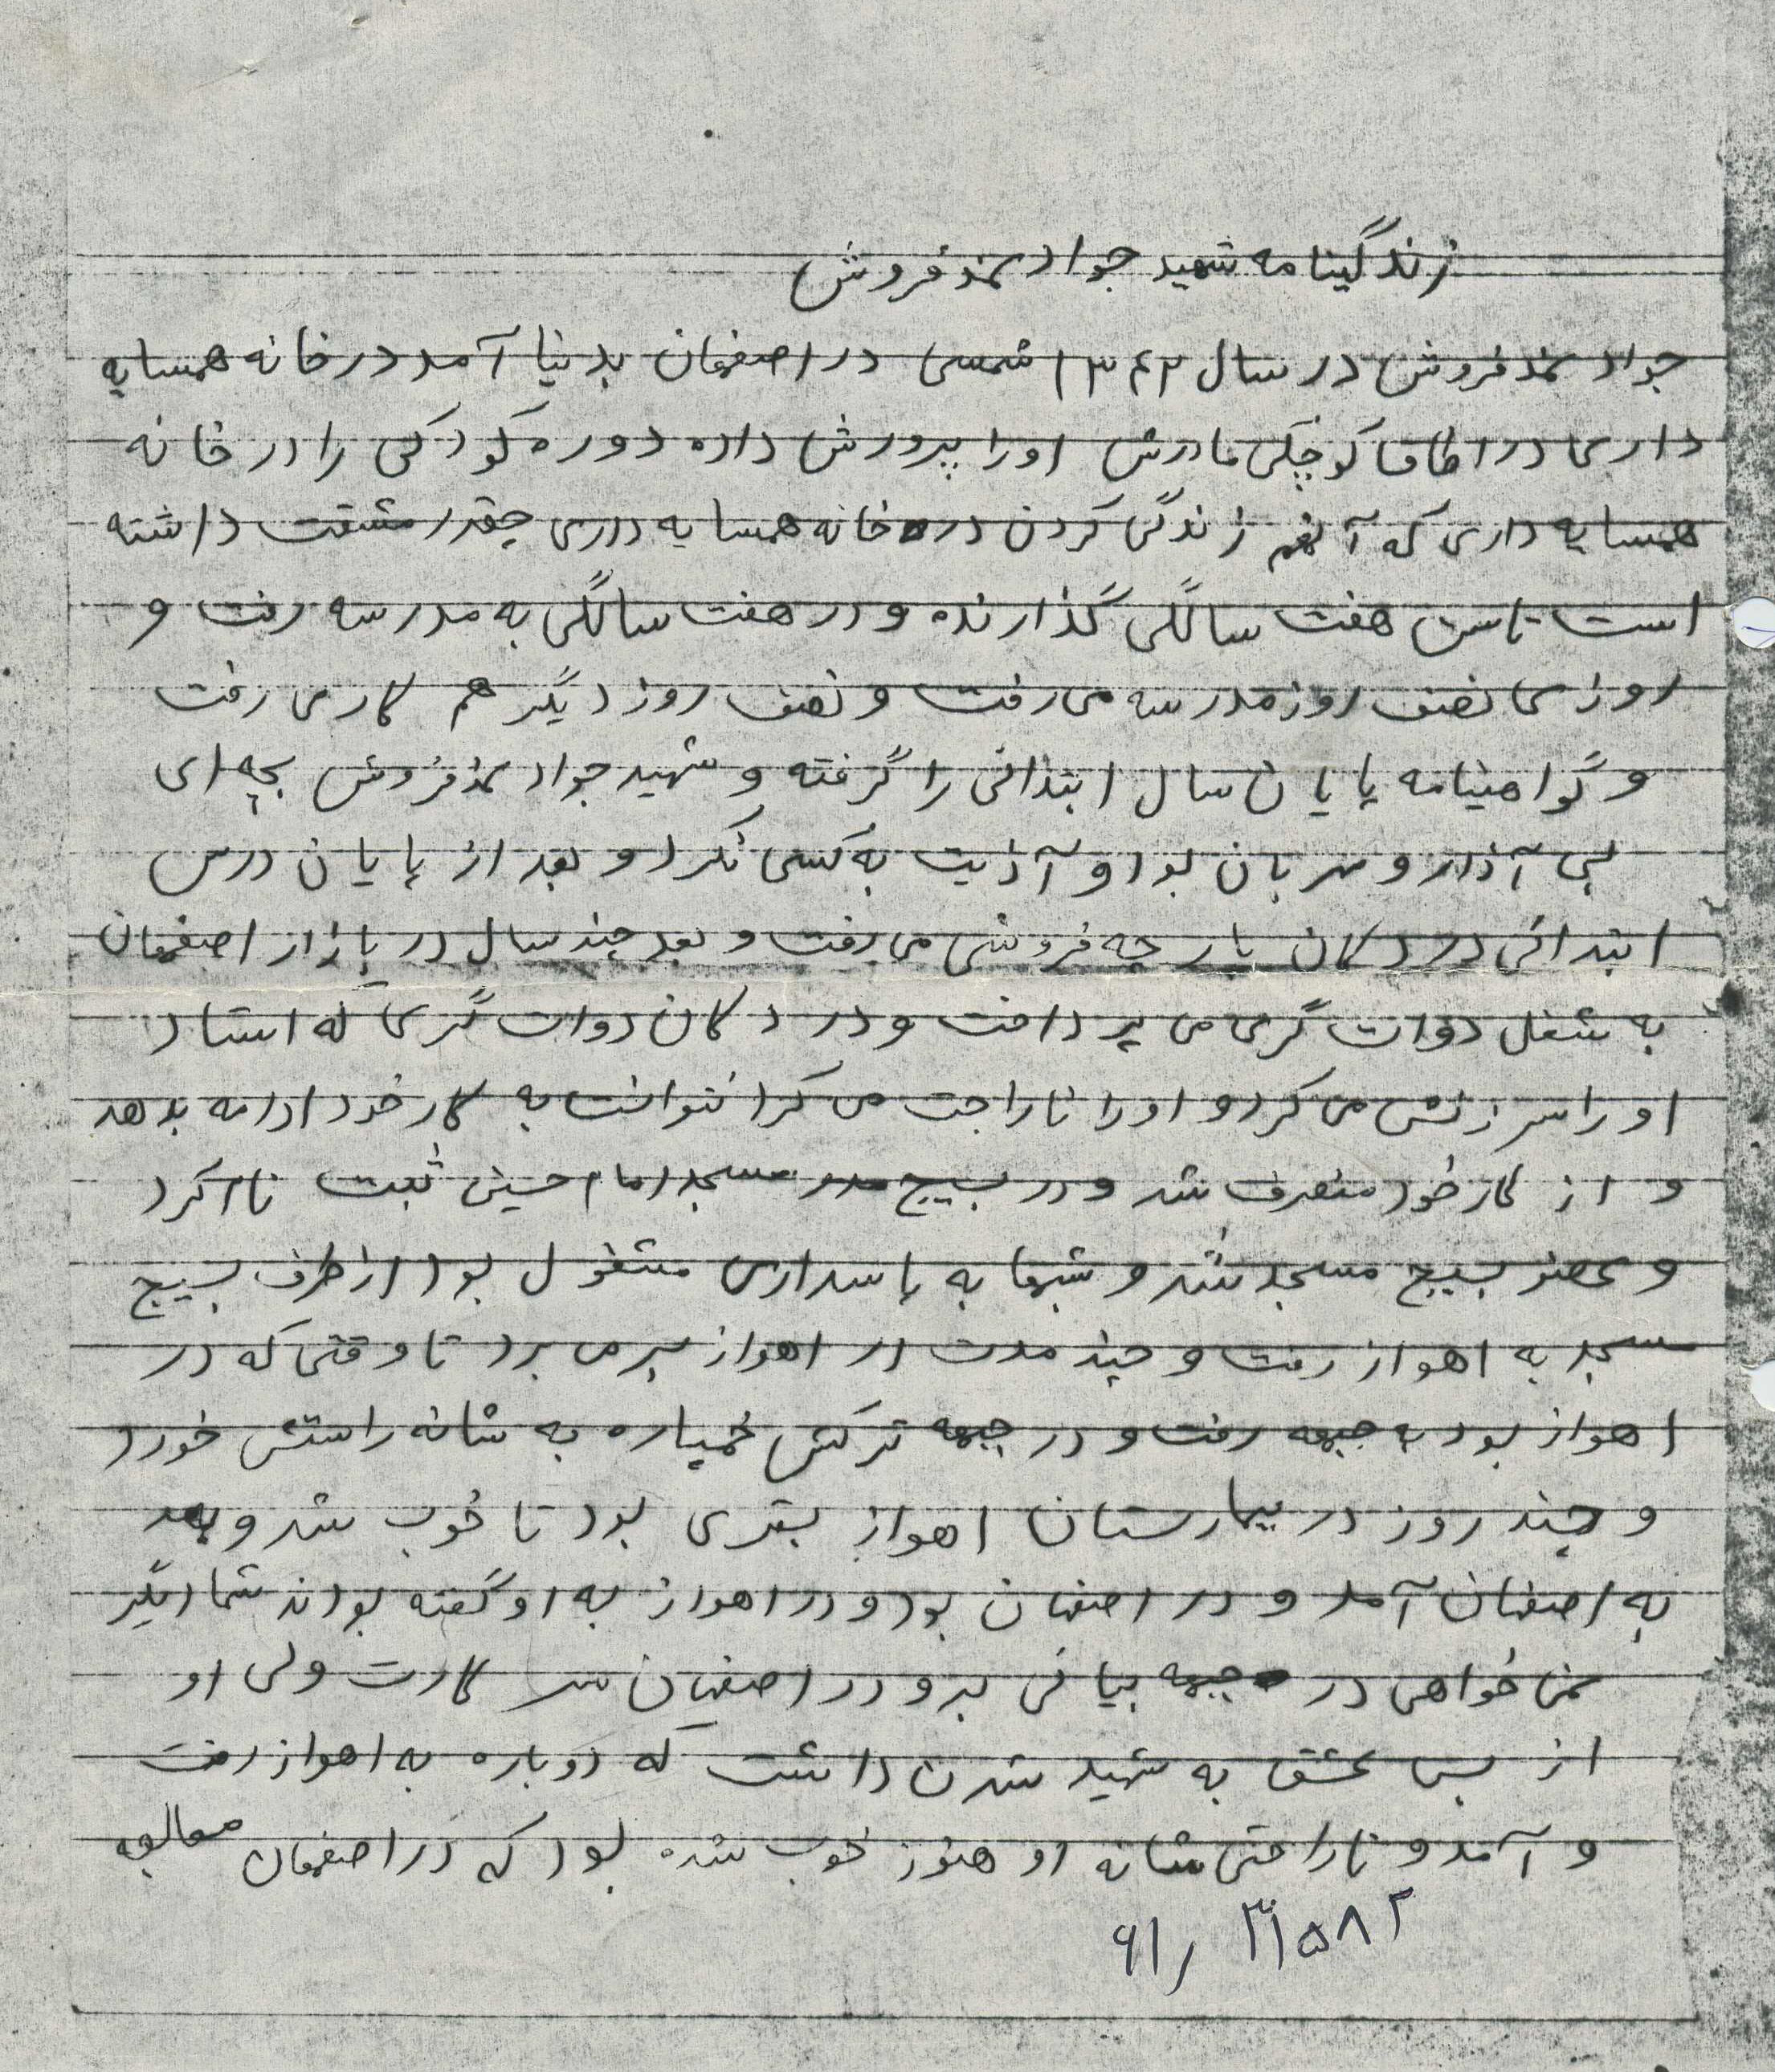 زندگینامه شهید جواد نمدفروش
جواد نمدفروش در سال ۱۳۴۲ شمسی در اصفهان بدنیا آمد در خانه همسایه
داری در اطاق کوچکی مادرش او را پرورش داده دوره کودکی را در خانه
همسایه داری که آنهم زندگی کردن در خانه همسایه داری چقدر مشقت داشته
است تا سن هفت سالگی گذارنده و در هفت سالگی به مدرسه رفت و
روزی نصف روز مدرسه می رفت و نصف روز دیگر هم کار می رفت
و گواهینامه پایان سال ابتدائی را گرفته و شهید جواد نمدفروش بچه ای
بی آذار و مهربان بود و آذیت به کسی نکرد و بعد از پایان درس
ابتدائی در دکان پارچه فروشی می رفت و بعد چند سال در بازار اصفهان
به شغل دوات گری می پرداخت و در دکان دوات گری که استاد
او را سرزنش می کرد و او را ناراحت می کرد نتوانست به کار خود ادامه بدهد
و از کار خود منصرف شد و در بسیج مسجد امام حسین ثبت نام کرد
و عضو بسیج مسجد شد و شبها به پاسداری مشغول بود از طرف بسیج
مسجد به اهواز رفت و چند مدت در اهواز بسر می برد تا وقتی که در
اهواز بود به جبهه رفت و در جبهه ترکش خمپاره به شانه راستش خورد
و چند روز در بیمارستان اهواز بستری بود تا خوب شد و بعد
به اصفهان آمد و در اصفهان بود و در اهواز به او گفته بودند شما دیگر
نمی خواهی در جبهه بیائی برو در اصفهان سر کارت ولی او
از بس عشق به شهید شدن داشت که دوباره به اهواز رفت
و آمد و ناراحتی شانه او هنوز خوب نشده بود که در اصفهان معالجه
۶۱ / ۳۱۵۸۲